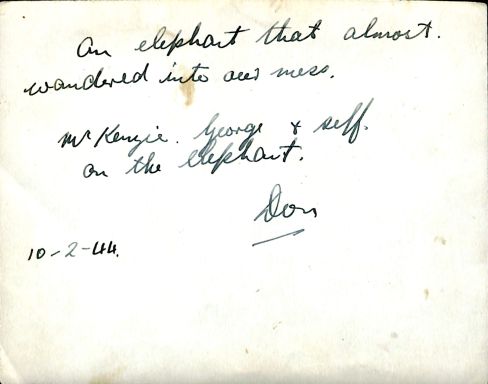 An elephant that almost.
wandered into our mess.
McKenzie. George & self.
on the elephant.
Don
10-2-44.